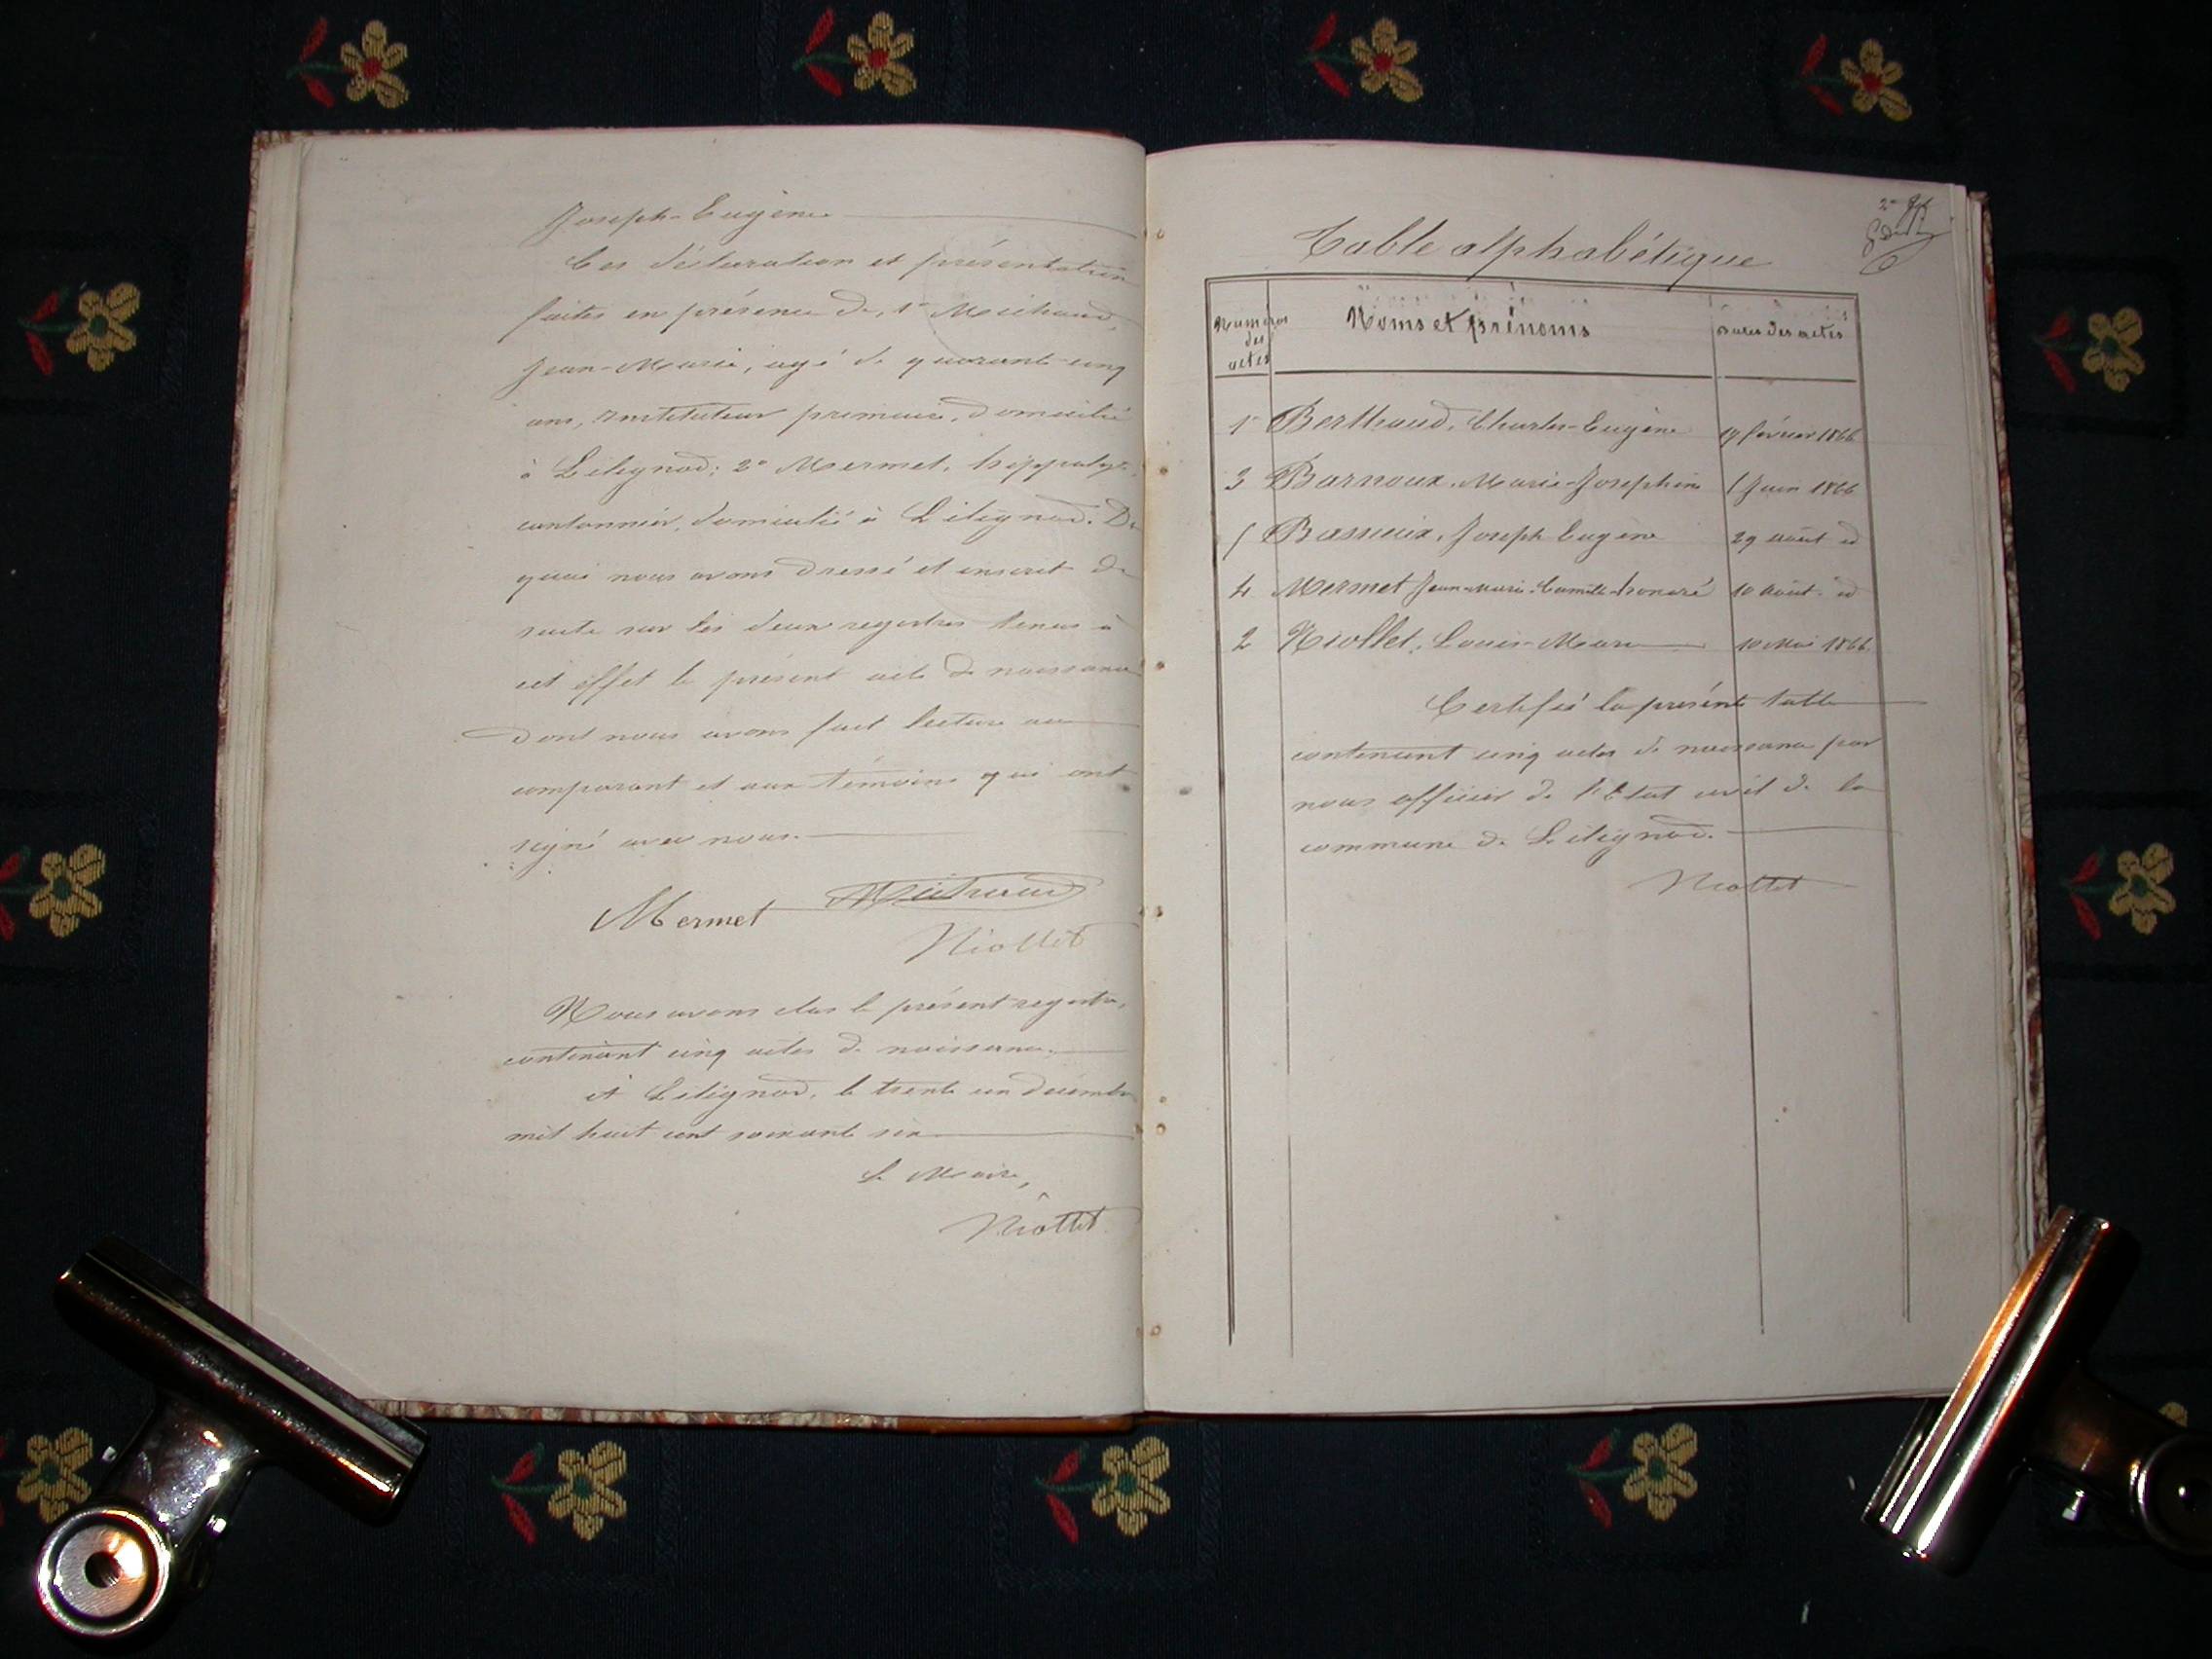 Joseph-Eugène
Ces déclaration et présentation
faites en présence de, 1° Michaud,
Jean-Marie, agé de quarante-cinq
ans, instituteur primaire, domicilié
à Lilignod; 2° Mermet, hippolyte
cantonnier, domicilié à Lilignod. De
quoi nous avons dressé et inscrit de
suite sur les deux registres tenus à
cet effet le présent acte de naissance
dont nous avons fait lecture au
comparant et aux témoins qui ont
signé avec nous.
Mermet Michaud
Niollet
Nous avons clos le présent registre,
contenant cinq actes de naissance.
à Lilignod, le trente un décembre
mil huit cent soixante six
Le Maire,
Niollet
2e
Table alphabétique
Numéros des actes Noms et prénoms Dates des actes
1 Berthaud, Charles-Eugène 19 février 1866
3 Barnoux, Marie-Joséphine 1 Juin 1866
5 Bassieux, Joseph Eugène 29 août id
4 Mermet Jean-Marie-Camille-honoré 10 Août id
2 Niollet, Louis-Marie 10 Mai 1866
Certifié la présente table
contenant cinq actes de naissance par
nous officier de l'Etat civil de la
commune de Lilignod.
Niollet